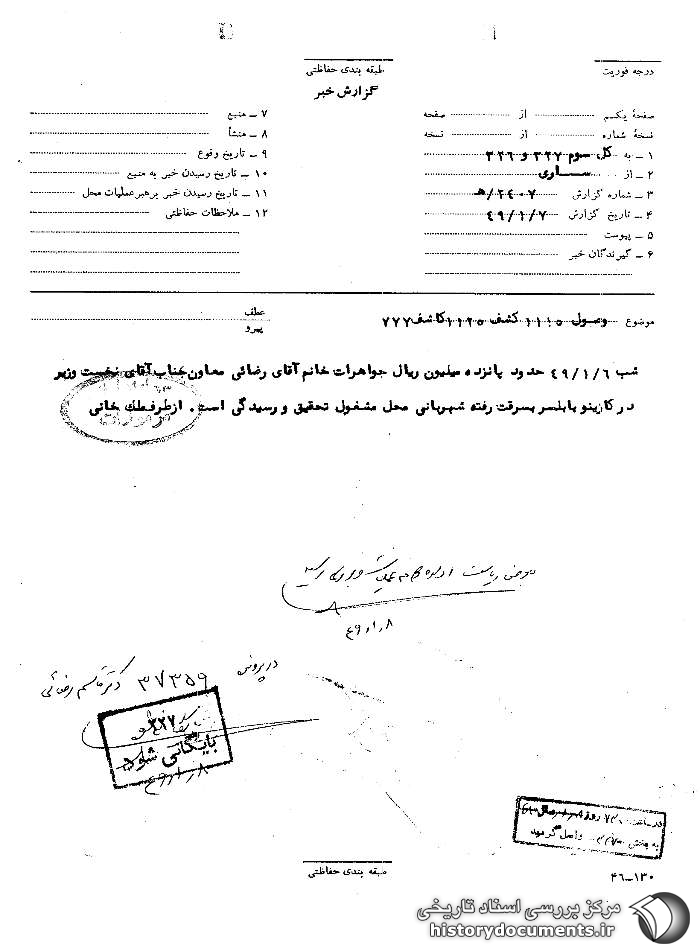 طبقه بندی حفاظتی
درجه فوریت
گزارش خبر
صفحهٔ یکم از صفحه
نسخهٔ شماره از نسخه
۱ ـ به کل سوم ۳۲۷ و ۳۲۶
۲ ـ از ساری
۳ ـ شماره گزارش ۲۴۰۷/هـ
۴ ـ تاریخ گزارش ۴۹/۱/۷
۵ ـ پیوست
۶ ـ گیرندگان خبر
۷ ـ منبع
۸ ـ منشأ
۹ ـ تاریخ وقوع
۱۰ ـ تاریخ رسیدن خبر به منبع
۱۱ ـ تاریخ رسیدن خبر برهبر عملیات محل
۱۲ ـ ملاحظات حفاظتی
موضوع وصول ۱۱۱۵ کشف ۱۱۲۵ کاشف ۷۷۷
عطف
پیرو
شب ۴۹/۱/۶ حدود پانزده میلیون ریال جواهرات خانم آقای رضائی معاون جناب آقای نخست وزیر
در کازینو بابلسر بسرقت رفته شهربانی محل مشغول تحقیق و رسیدگی است. از طرف ملک خانی
بعرض ریاست اداره رسید
۸ر۱ر۴۹
در پرونده ۳۷۳۵۹ دکتر قاسم رضائی
۳۲۷
بایگانی شود
۸ر۱ر۴۹
روز
به بخش واصل گردید
طبقه بندی حفاظتی
۴۶-۱۳۰
مرکز بررسی اسناد تاریخی
historydocuments.ir